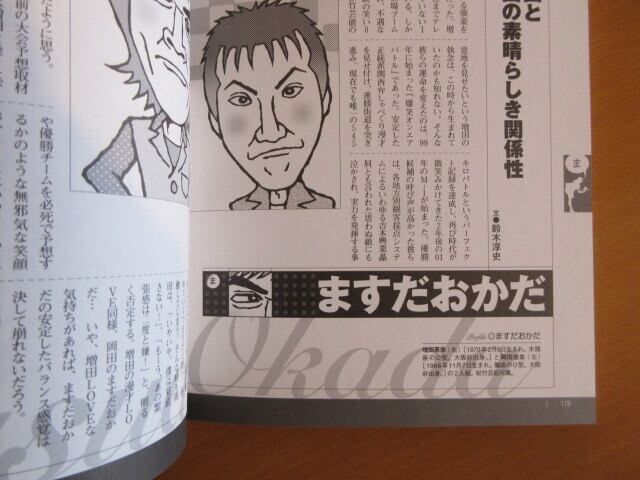 と
の素晴らしき関係性
文●鈴木淳史
意地を見せたいという増田の
執念は、この時から生まれて
いたのかも知れない。そんな
彼らの運命を変えたのは、99
年に始まった「爆笑オンエア
バトル」であった。安定した
正統派関西弁しゃべくり漫才
を見せ付け、連勝街道を突き
進み、現在でも唯一の545
キロバトルというパーフェク
ト記録を達成し、再び時代が
微笑みかけてきた2年後の01
年のM-1が始まった。優勝
候補の呼び声が高かった彼ら
は、各地方別観客採点システ
ムによるいわゆる吉本興業贔
屓とも言われた思わぬ敵にも
泣かされ、実力を発揮する事
ま
ま
ますだおかだ
Profile ◎ますだおかだ
増田英彦(右)【1970年2月9日生まれ。水瓶
座のO型。大阪府出身。】と岡田圭右(左)
【1968年11月7日生まれ。蠍座のO型。大阪
府出身。】の2人組。松竹芸能所属。
Okada
たように思う。
前の大会予想取材
や優勝チームを必死で予想す
るかのような無邪気な笑顔
田は、「いやいや、僕は
さない!」、「もう、あの緊
張感は二度と嫌!」と、明る
く否定する。増田の漫才LO
VE同様、岡田のますだおか
だ…いや、増田LOVEな
気持ちがあれば、ますだおか
だの安定したバランス感覚は
決して崩れないだろう。